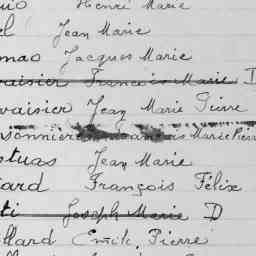 Henri Marie
Jean Marie
Jacques Marie
François Marie D
vaisier Jean Marie Pierre
sonnière Marie Pierre
Jean Marie
ard François Félix
ti Joseph Marie D
llard Emile, Pierre